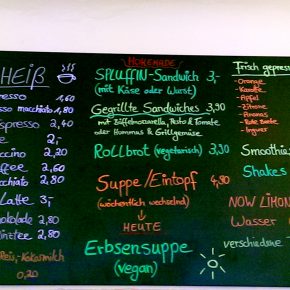 HEIß
presso 1,60
sso macchiato 1,80
spresso 2,40
e 2,-
ccino 2,20
ffee 2,60
cchiato 2,80
Latte 3,-
okolade 2,80
inztee 2,80
Reis-, Kokosmilch
0,20
HOMEMADE
SPLUFFIN-Sandwich 3,-
(mit Käse oder Wurst)
Gegrillte Sandwiches 3,90
mit Büffelmozzarella, Pesto & Tomate
oder Hommus & Grillgemüse
Rollbrot (vegetarisch) 3,30
Suppe/Eintopf 4,80
(wöchentlich wechselnd)
HEUTE
Erbsensuppe
(vegan)
frisch gepress
- Orange
- Karotte
- Apfel
- Zitrone
- Ananas
- Rote Beete
- Ingwer
Smoothies
Shakes
NOW LIMON
Wasser
verschiedene